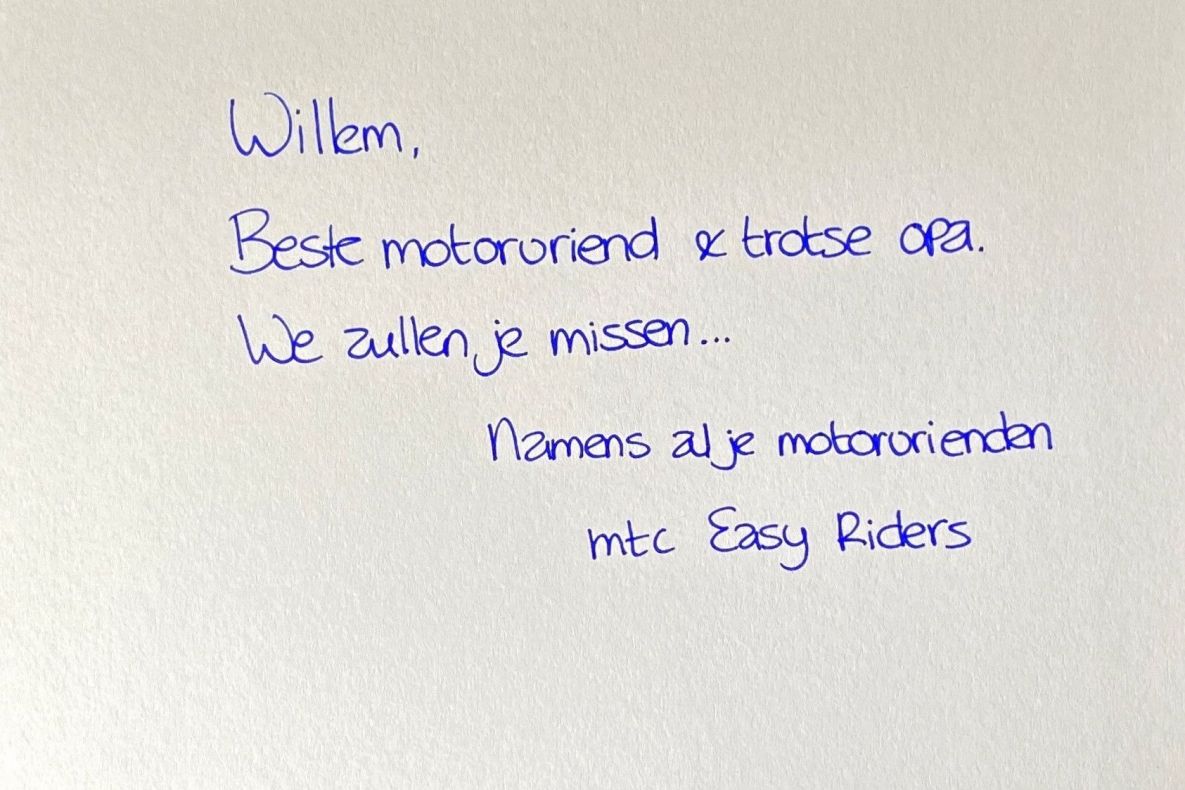 Willem,
Beste motorvriend & trotse opa.
We zullen je missen...
Namens al je motorvrienden
mtc Easy Riders